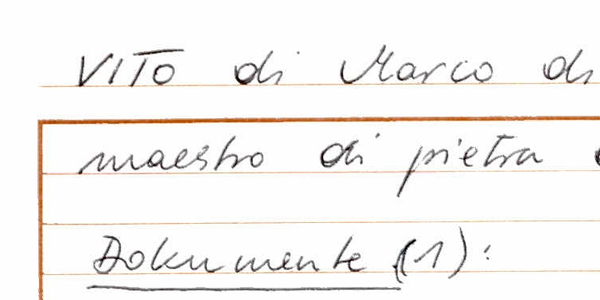 VITO di Marco di
maestro di pietra
Dokumente (1):